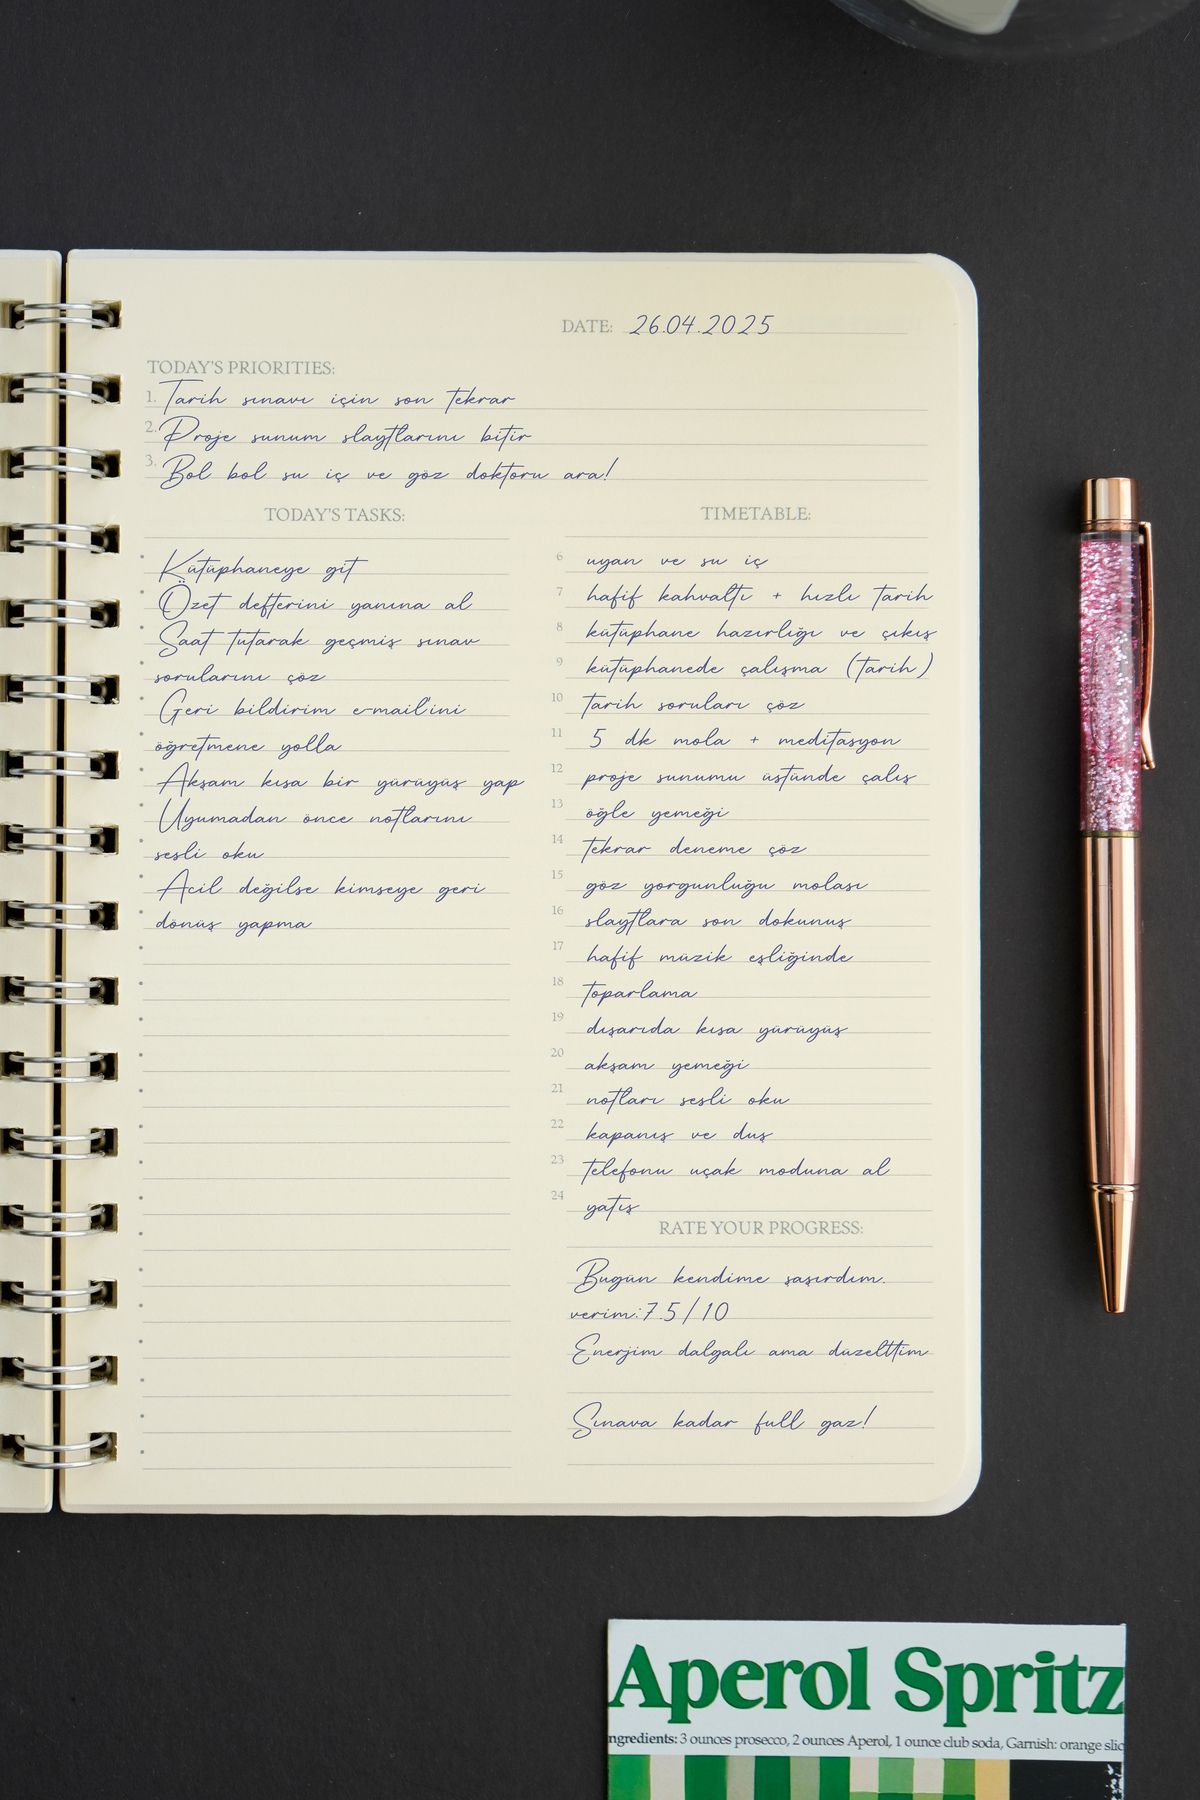 DATE: 26.04.2025
TODAY'S PRIORITIES:
1. Tarih sınavı için son tekrar
2. Proje sunum slaytlarını bitir
3. Bol bol su iç ve göz doktoru ara!
TODAY'S TASKS:
Kütüphaneye git
Özet defterini yanına al
Saat tutarak geçmiş sınav
sorularını çöz
Geri bildirim e-mail'ini
öğretmene yolla
Akşam kısa bir yürüyüş yap
Uyumadan önce notlarını
sesli oku
Acil değilse kimseye geri
dönüş yapma
TIMETABLE:
6 uyan ve su iç
7 hafif kahvaltı + hızlı tarih
8 kütüphane hazırlığı ve çıkış
9 kütüphanede çalışma (tarih)
10 tarih soruları çöz
11 5 dk mola + meditasyon
12 proje sunumu üstünde çalış
13 öğle yemeği
14 tekrar deneme çöz
15 göz yorgunluğu molası
16 slaytlara son dokunuş
17 hafif müzik eşliğinde
18 toparlama
19 dışarıda kısa yürüyüş
20 akşam yemeği
21 notları sesli oku
22 kapanış ve duş
23 telefonu uçak moduna al
24 yatış
RATE YOUR PROGRESS:
Bugün kendime şaşırdım.
verim:7.5/10
Enerjim dalgalı ama düzelttim
Sınava kadar full gaz!
Aperol Spritz
ngredients: 3 ounces prosecco, 2 ounces Aperol, 1 ounce club soda, Garnish: orange slic